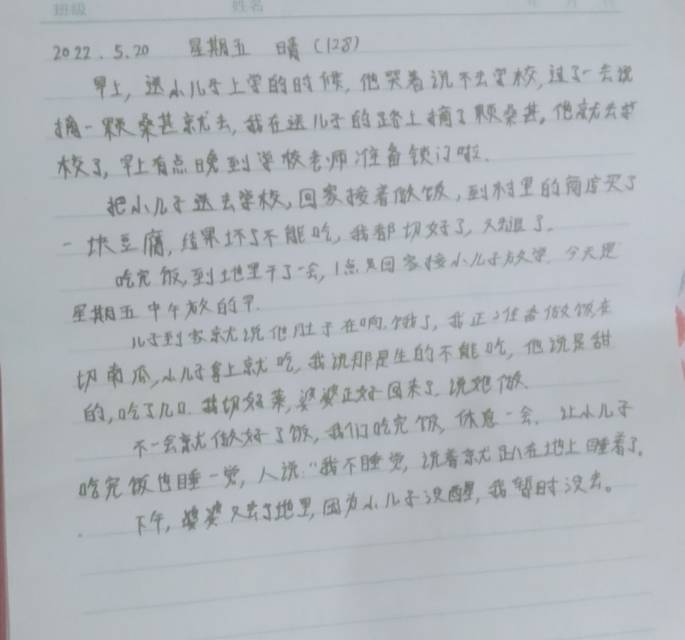 班级 姓名 年 月 日
2022.5.20 星期五 晴(128)
早上,送小儿子上学的时候,他哭着说不去学校,过了一会说
摘一颗桑甚就去,我在送儿子的路上摘了颗桑甚,他就去学
校了,早上有点晚到学校老师准备锁门啦.
把小儿子送去学校,回家接着做饭,到村里的商店买了
一块豆腐,结果坏了不能吃,我都切好了,又退了.
吃完饭,到土地里干了一会,1点又回家接小儿子放学.今天是
星期五中午放的早.
儿子到家就说他肚子在响.饿了,我正准备做饭在
切南瓜,小儿子拿上就吃,我说那是生的不能吃,他说是甜
的,吃了几口.我切好菜,婆婆正好回来了.说她做.
不一会就做好了饭,我们吃完饭,休息一会.让小儿子
吃完饭也睡一觉,人说:"我不睡觉,说着就趴在地上睡着了.
下午,婆婆又去了地里,因为小儿子没醒,我暂时没去。